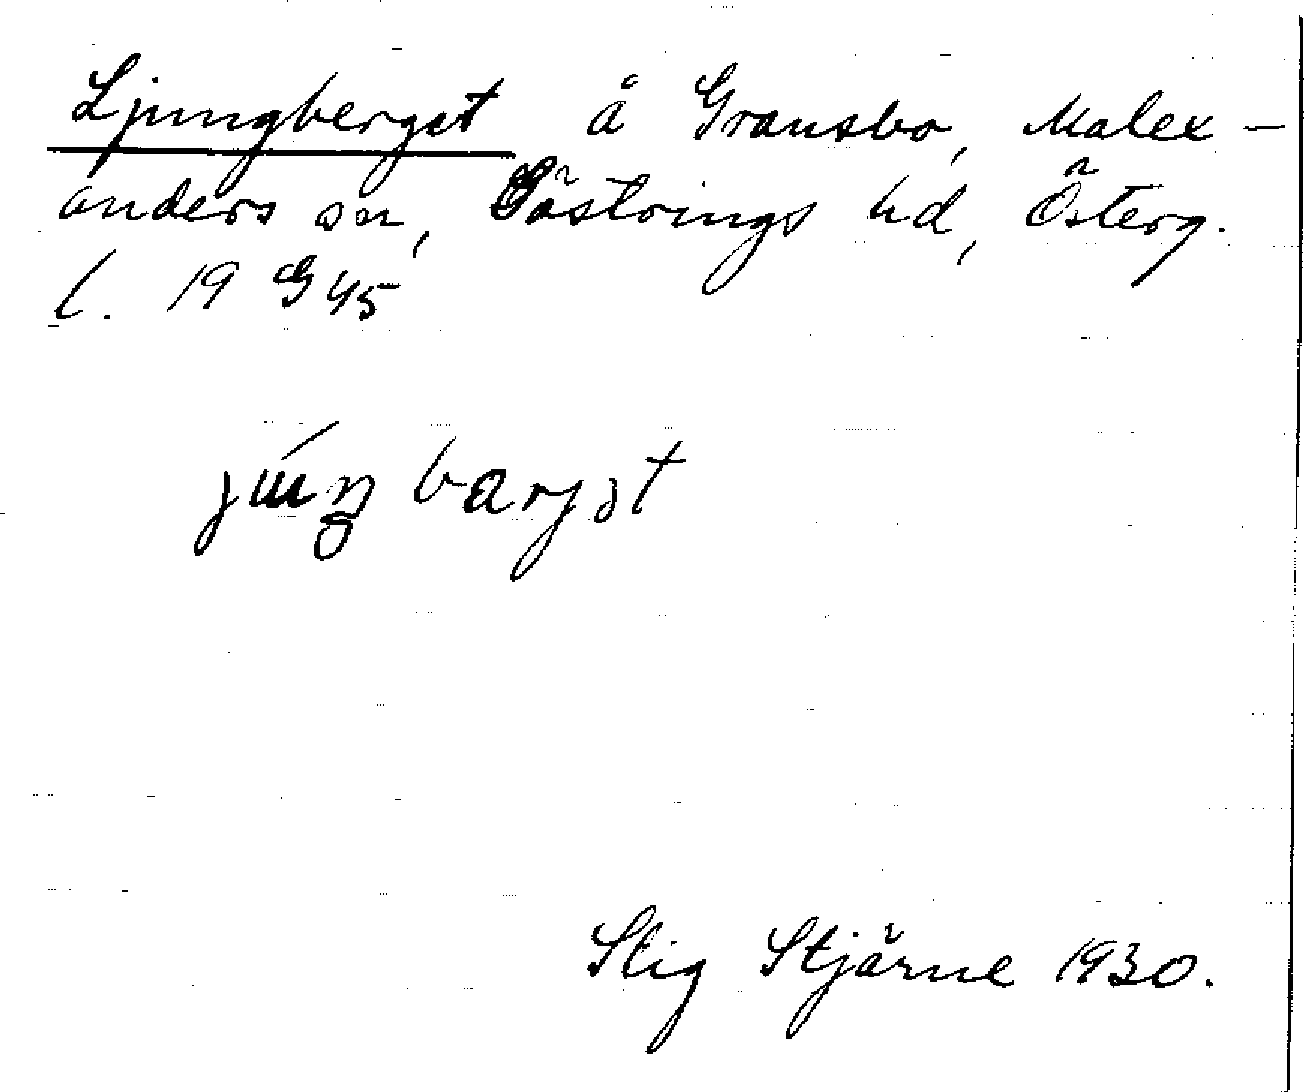 Ljungberget å Gransbo, Malex-
anders sn, Göstrings hd, Österg.
l. 19 G 45
Stig Stjärne 1930.